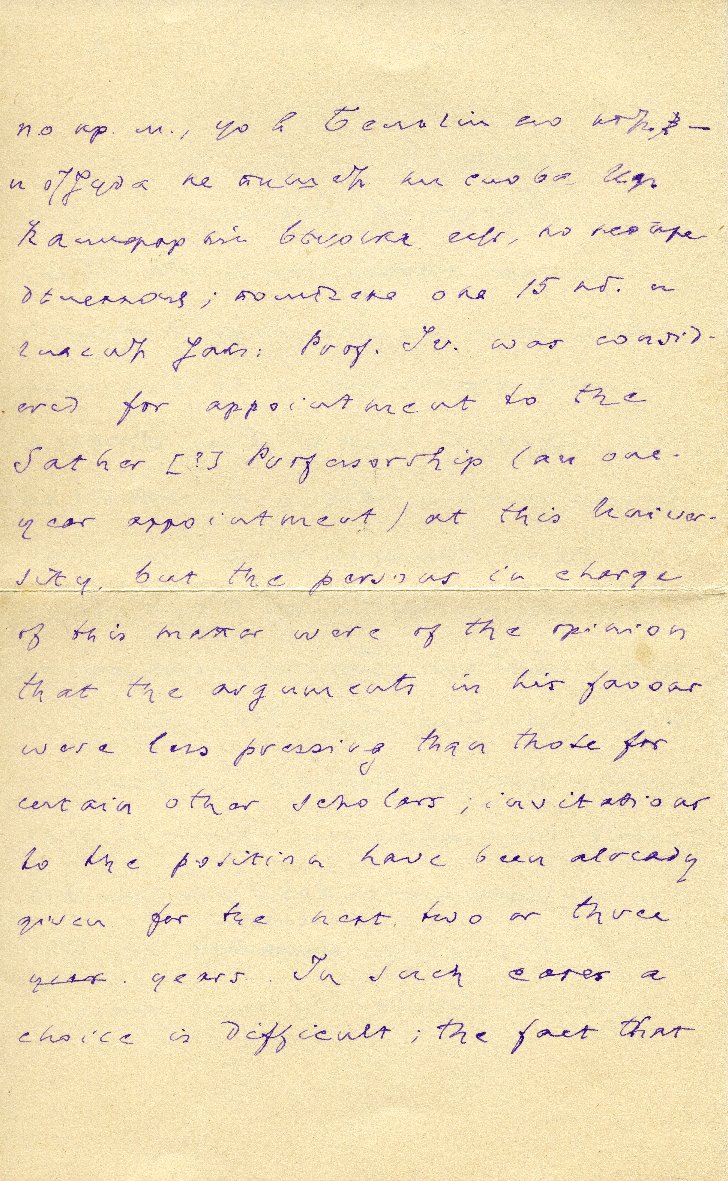 по кр. м., что в
и оттуда не пишут ни слова
Калифорнии
15
Prof. Iv. was consid-
ered for appointment to the
Sather [?] Professorship (an one-
year appointment) at this Univer-
sity, but the persons in charge
of this matter were of the opinion
that the arguments in his favour
were less pressing than those for
certain other scholars; invitations
to the position have been already
given for the next two or three
years. In such cases a
choice is difficult; the fact that